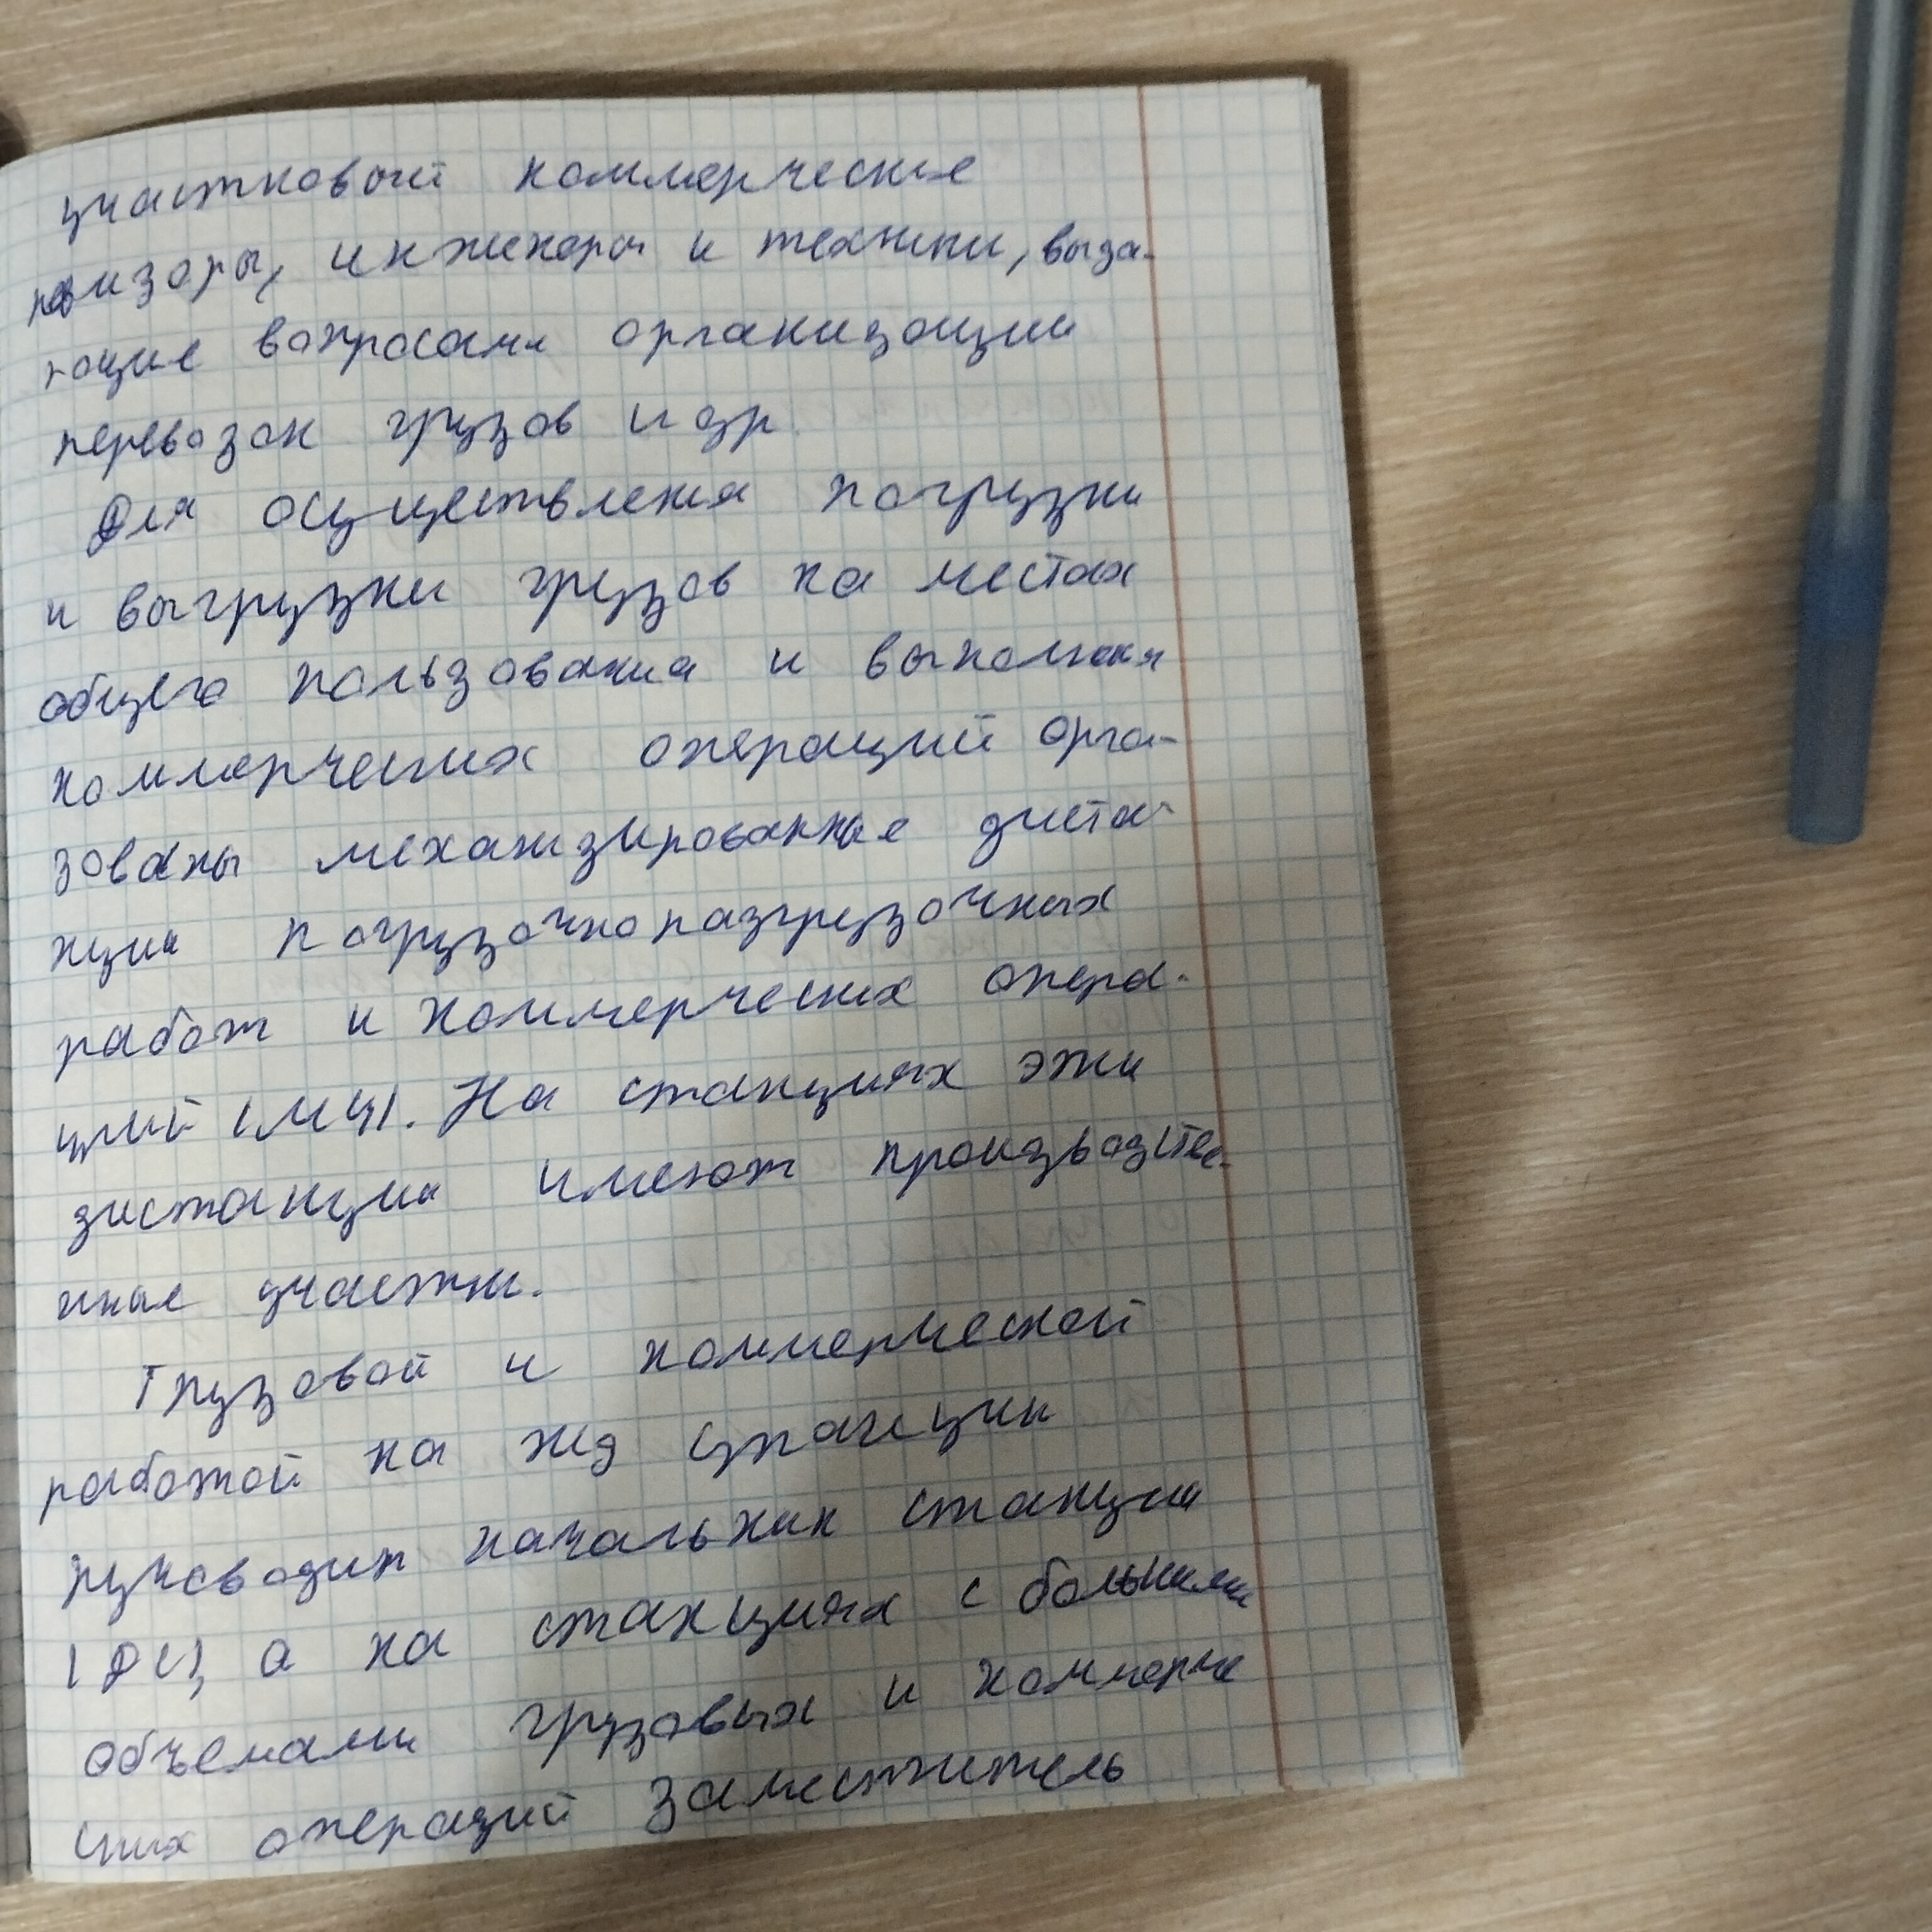 участковый коммерческие
ревизоры, инженеры и техники, выда-
ющие вопросами организации
перевозок грузов и др.
Для осуществления погрузки
и выгрузки грузов на местах
общего пользования и выполнения
коммерческих операций орга-
зованы механизированные диста-
нции погрузочноразгрузочных
работ и коммерческих опера-
ций (МЧ). На станциях эти
дистанции имеют производстве-
нные участки.
Грузовой и коммерческой
работой на жд станции
руководит начальник станции
(ДС), а на станциях с большими
объемами грузовых и коммерче
ских операций заместитель